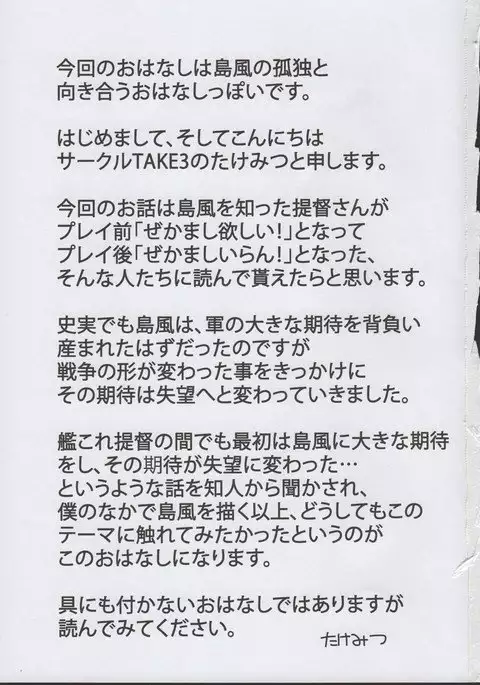 今回のおはなしは島風の孤独と
向き合うおはなしっぽいです。
はじめまして、そしてこんにちは
サークルTAKE3のたけみつと申します。
今回のお話は島風を知った提督さんが
プレイ前「ぜかまし欲しい!」となって
プレイ後「ぜかましいらん!」となった、
そんな人たちに読んで貰えたらと思います。
史実でも島風は、軍の大きな期待を背負い
産まれたはずだったのですが
戦争の形が変わった事をきっかけに
その期待は失望へと変わっていきました。
艦これ提督の間でも最初は島風に大きな期待
をし、その期待が失望に変わった…
というような話を知人から聞かされ、
僕のなかで島風を描く以上、どうしてもこの
テーマに触れてみたかったというのが
このおはなしになります。
具にも付かないおはなしではありますが
読んでみてください。
たけみつ